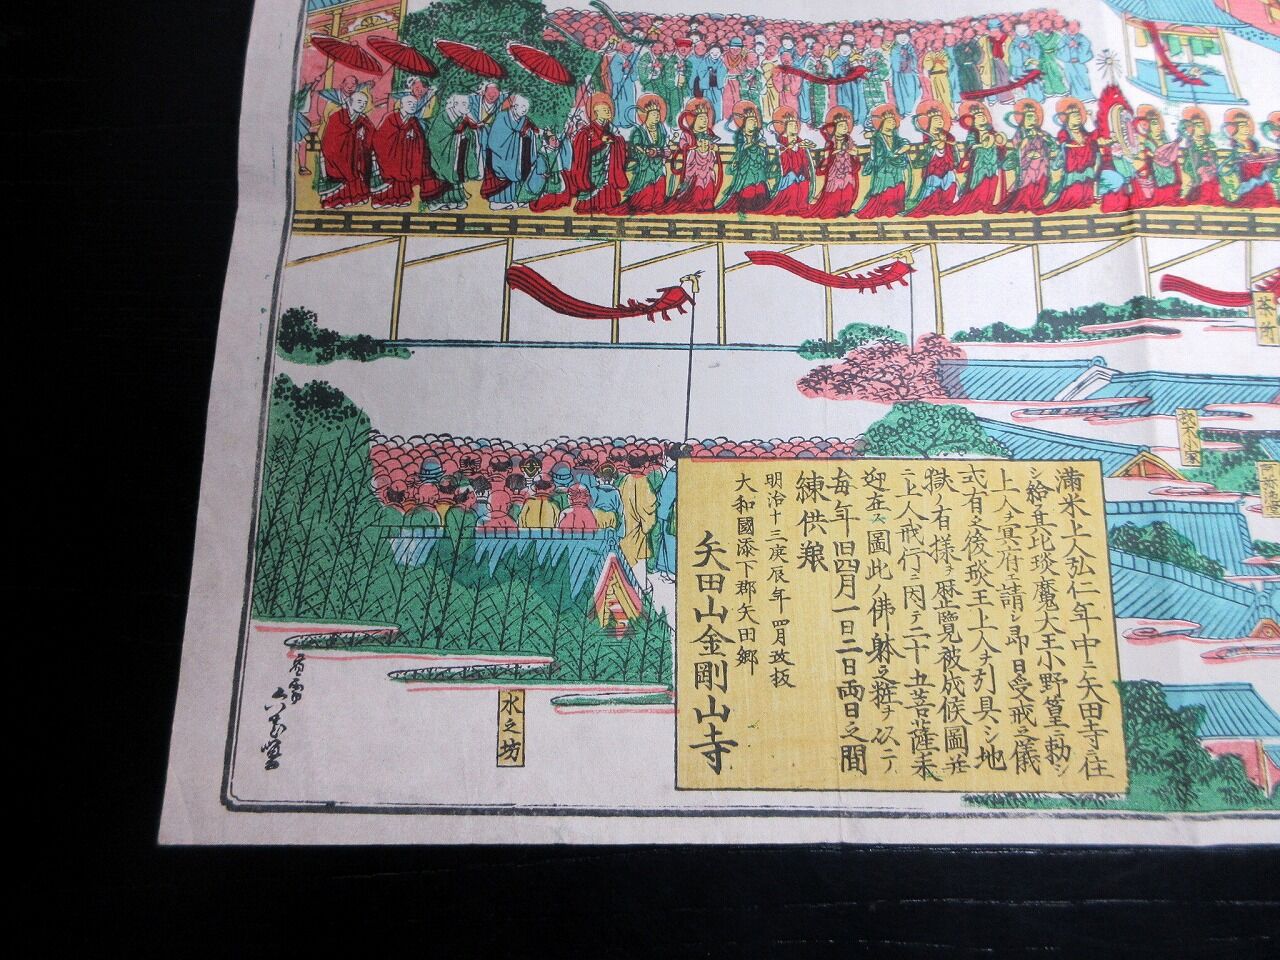 茶所
水之坊
満米上人弘仁年中ニ矢田寺ニ住
シ給ヲ其比琰魔大王小野篁ニ勅シ
上人ヲ冥府エ請シ即日受戒之儀
式有之後琰王上人ヲ引具シ地
獄ノ有様ヲ歴覧被成候圖并
ニ上人戒行ニ因テ二十五菩薩来
迎在ス圖此ノ佛躰之粧ヲ以テ
毎年旧四月一日二日両日之間
練供養
明治十三庚辰年四月改板
大和國添下郡矢田郷
矢田山金剛山寺